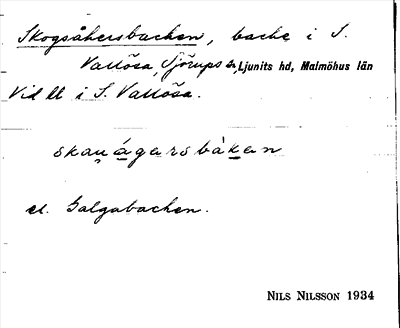 Skogsåkersbacken, backe i S.
Vallösa, Sjörups sn, Ljunits hd, Malmöhus län
Vid lt i S. Vallösa.
skau̯ágarsbàkan
el. Galgabacken.
NILS NILSSON 1934